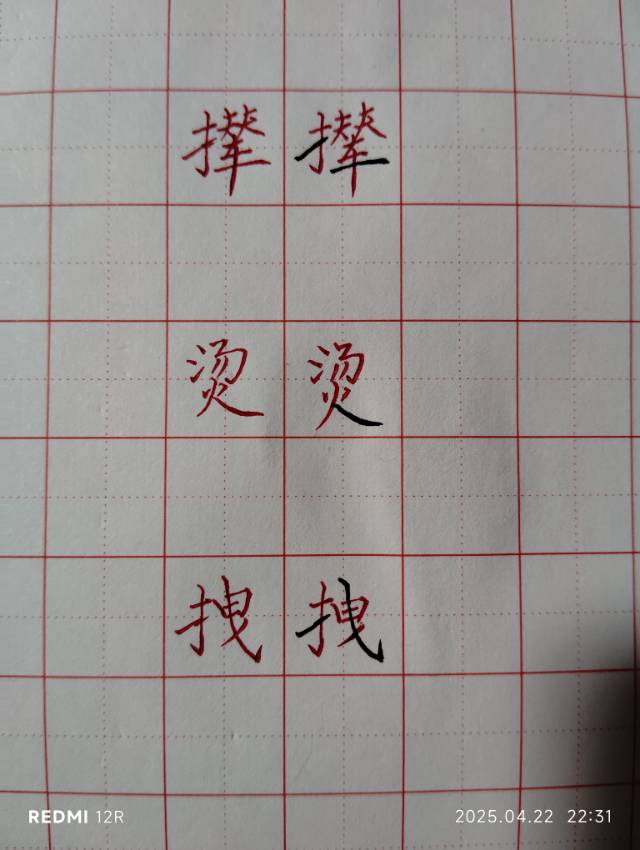 撵 撵
烫 烫
拽 拽
REDMI 12R 2025.04.22 22:31